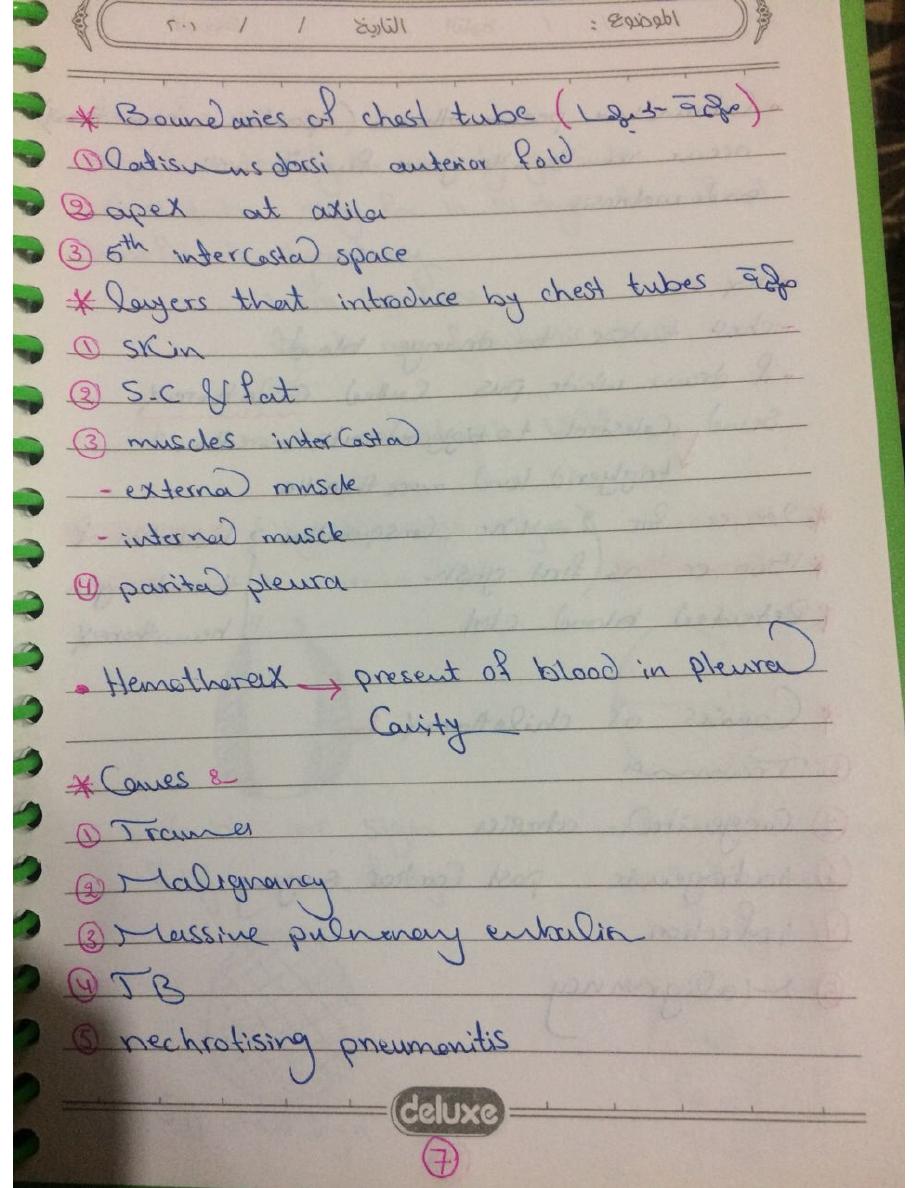 الموضوع : التاريخ / / ٢٠١
* Boundaries of chest tube ( مهمة )
① latismus dorsi anterior fold
② apex at axila
③ 5th intercostal space
* layers that introduce by chest tubes مهمة
① skin
② S.C & fat
③ muscles intercostal
- external muscle
- internal muscle
④ parital pleura
• Hemothorax → present of blood in pleural
Cavity
* Causes :-
① Trauma
② Malignancy
③ Massive pulmonary
④ TB
⑤ nechrotising pneumonitis
deluxe
⑦